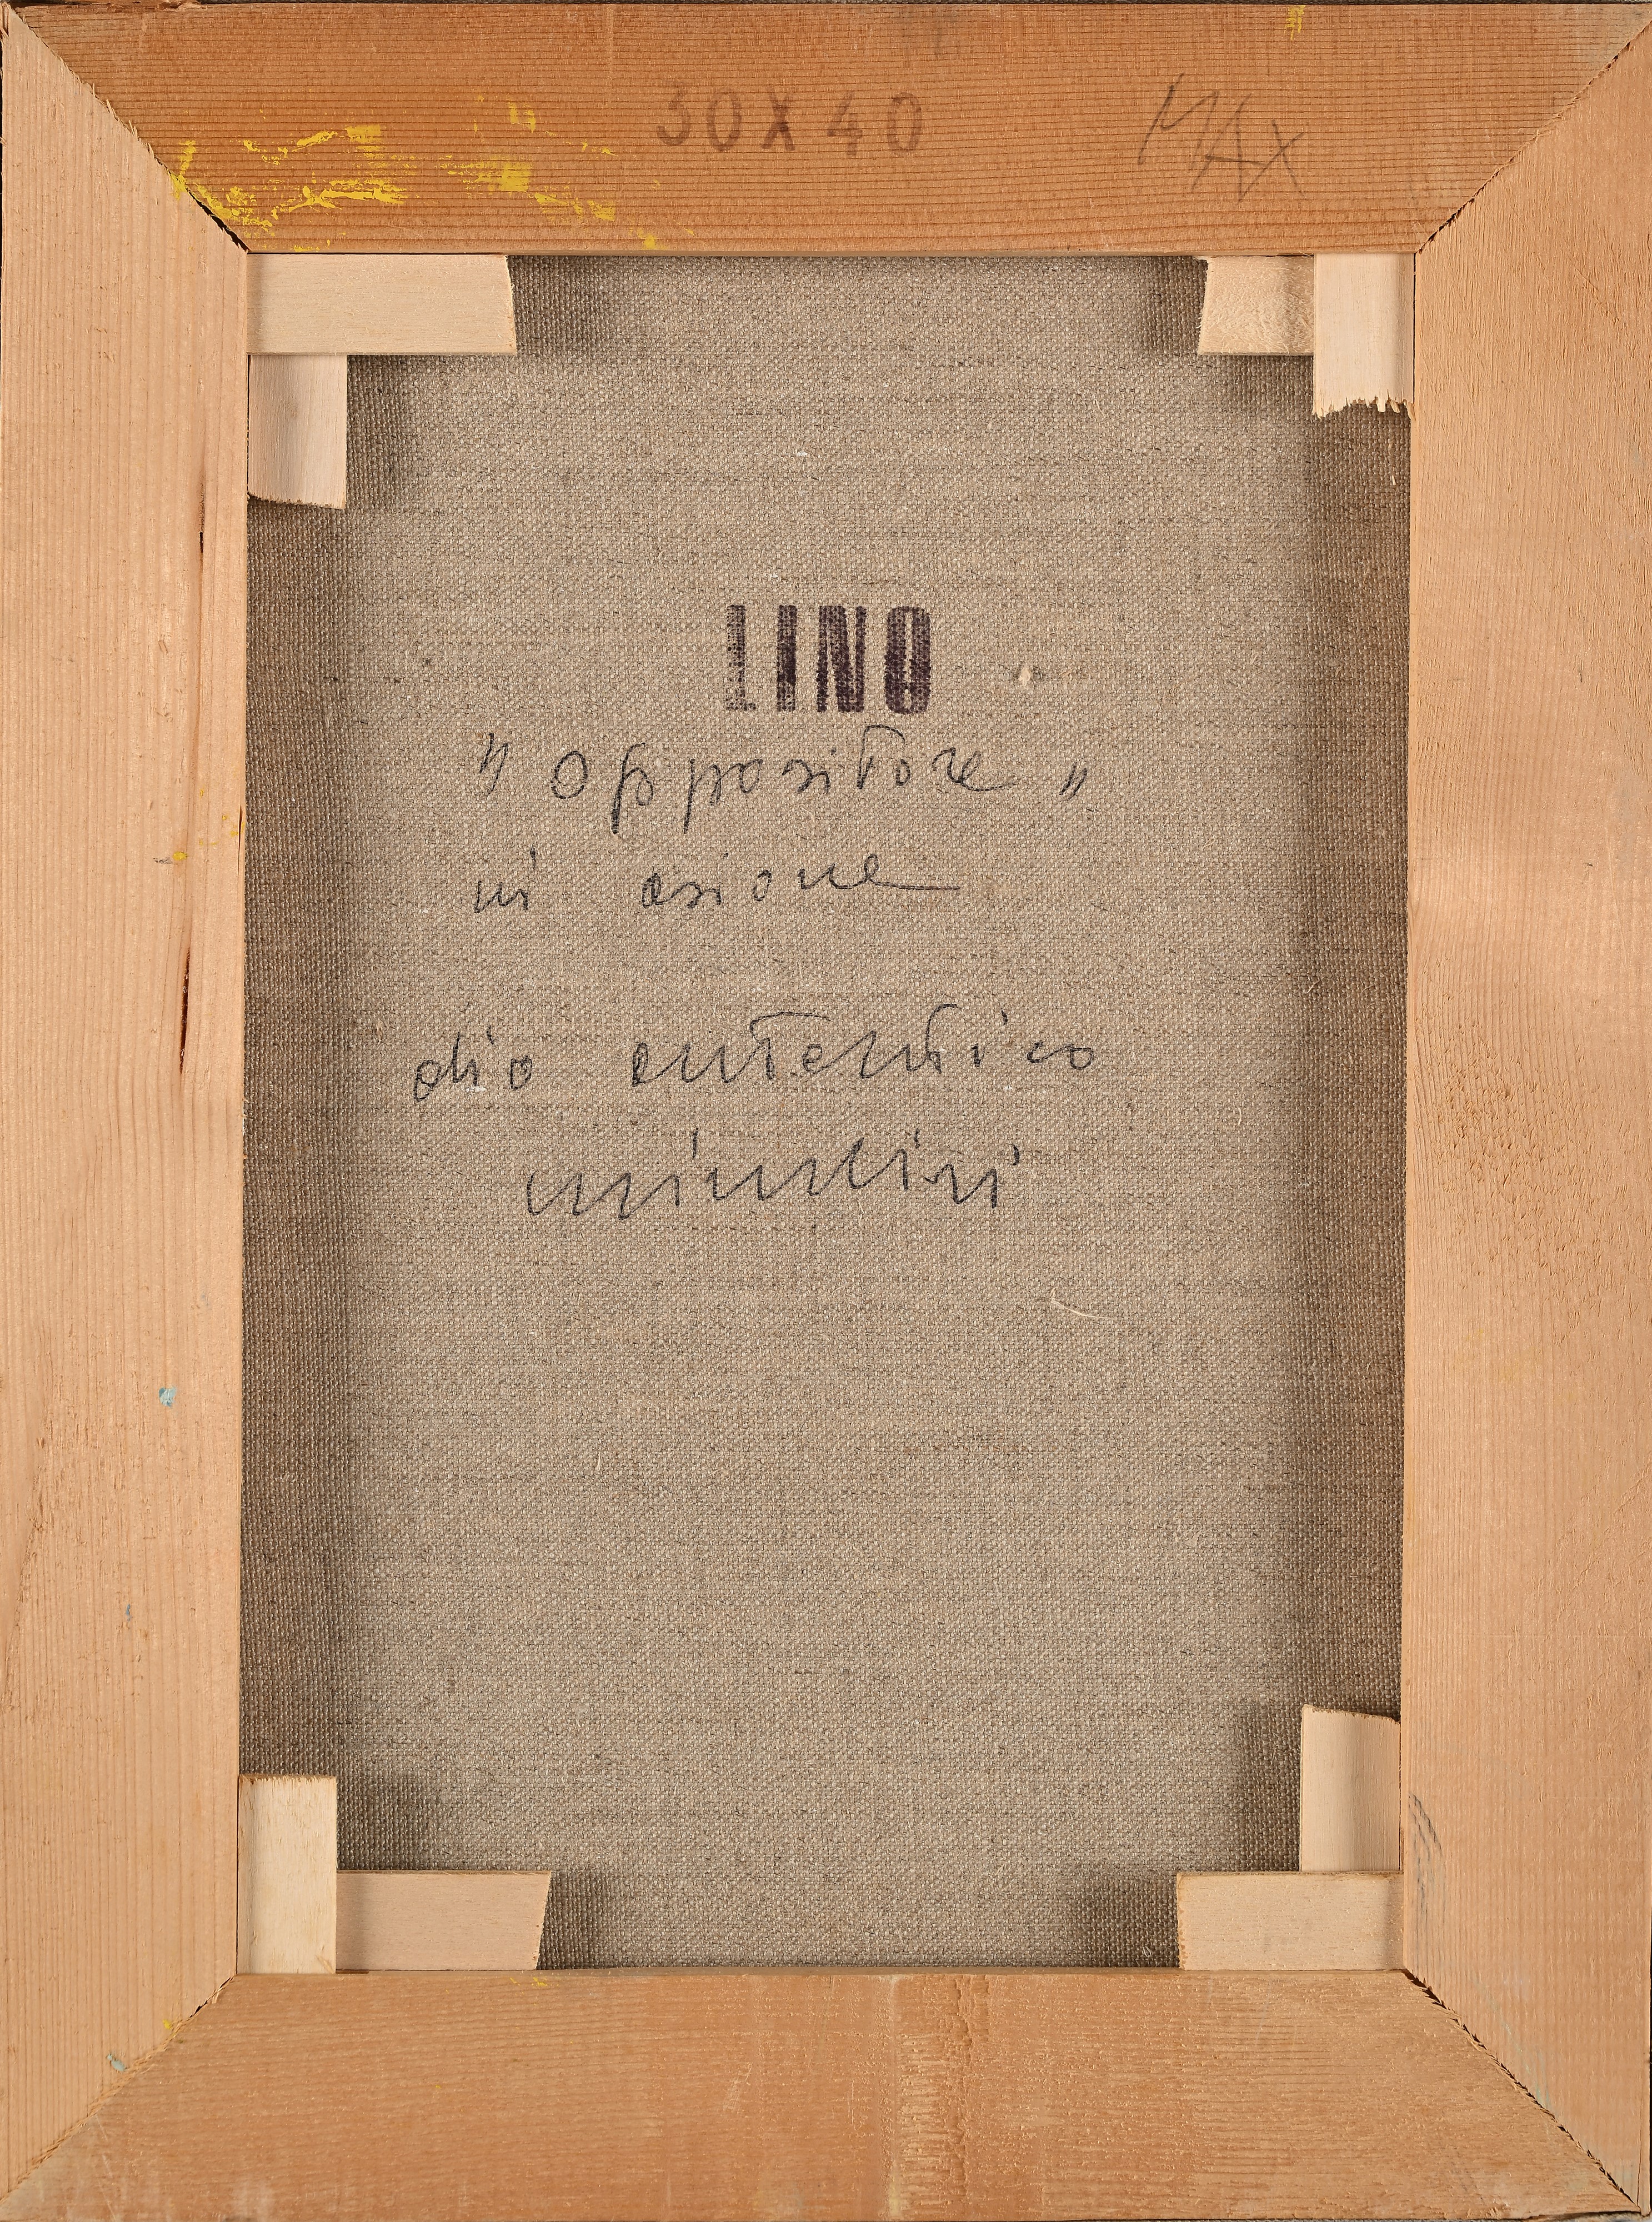 30X40 MAX
LINO
"Oppositore"
in azione
olio autentico